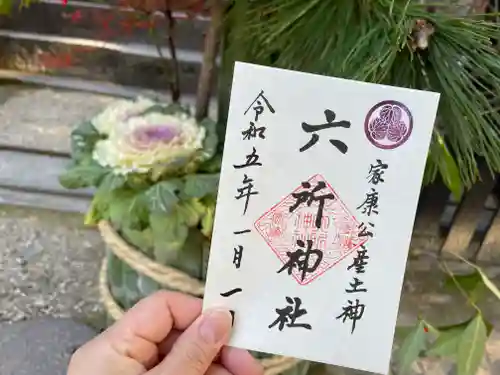 家康公産土神
六所神社
令和五年一月一